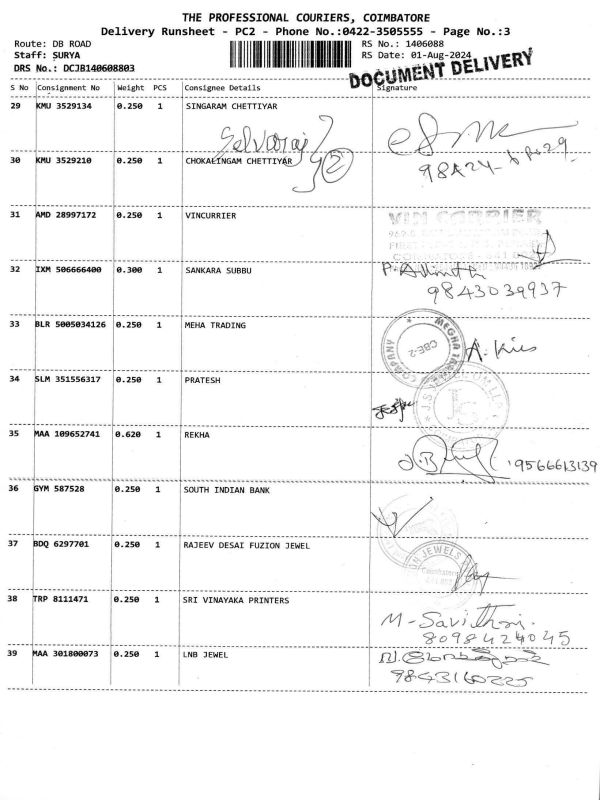 THE PROFESSIONAL COURIERS, COIMBATORE
Delivery Runsheet - PC2 - Phone No.:0422-3505555 - Page No.:3
Route: DB ROAD RS No.: 1406088
Staff: SURYA RS Date: 01-Aug-2024
DRS No.: DCJB140608803
DOCUMENT DELIVERY
S No Consignment No Weight PCS Consignee Details Signature
29 KMU 3529134 0.250 1 SINGARAM CHETTIYAR
Selvaraj
30 KMU 3529210 0.250 1 CHOKALINGAM CHETTIYAR
2
31 AMD 28997172 0.250 1 VINCURRIER
VIN CARRIER
32 IXM 506666400 0.300 1 SANKARA SUBBU
9843039937
33 BLR 5005034126 0.250 1 MEHA TRADING
MEGHA TRADING COMPANY
CBE-2
34 SLM 351556317 0.250 1 PRATESH
JS
35 MAA 109652741 0.620 1 REKHA
9566613139
36 GYM 587528 0.250 1 SOUTH INDIAN BANK
37 BDQ 6297701 0.250 1 RAJEEV DESAI FUZION JEWEL
JEWELS
Coimbatore
38 TRP 8111471 0.250 1 SRI VINAYAKA PRINTERS
M-Savithri.
8098424045
39 MAA 301800073 0.250 1 LNB JEWEL
9843160225